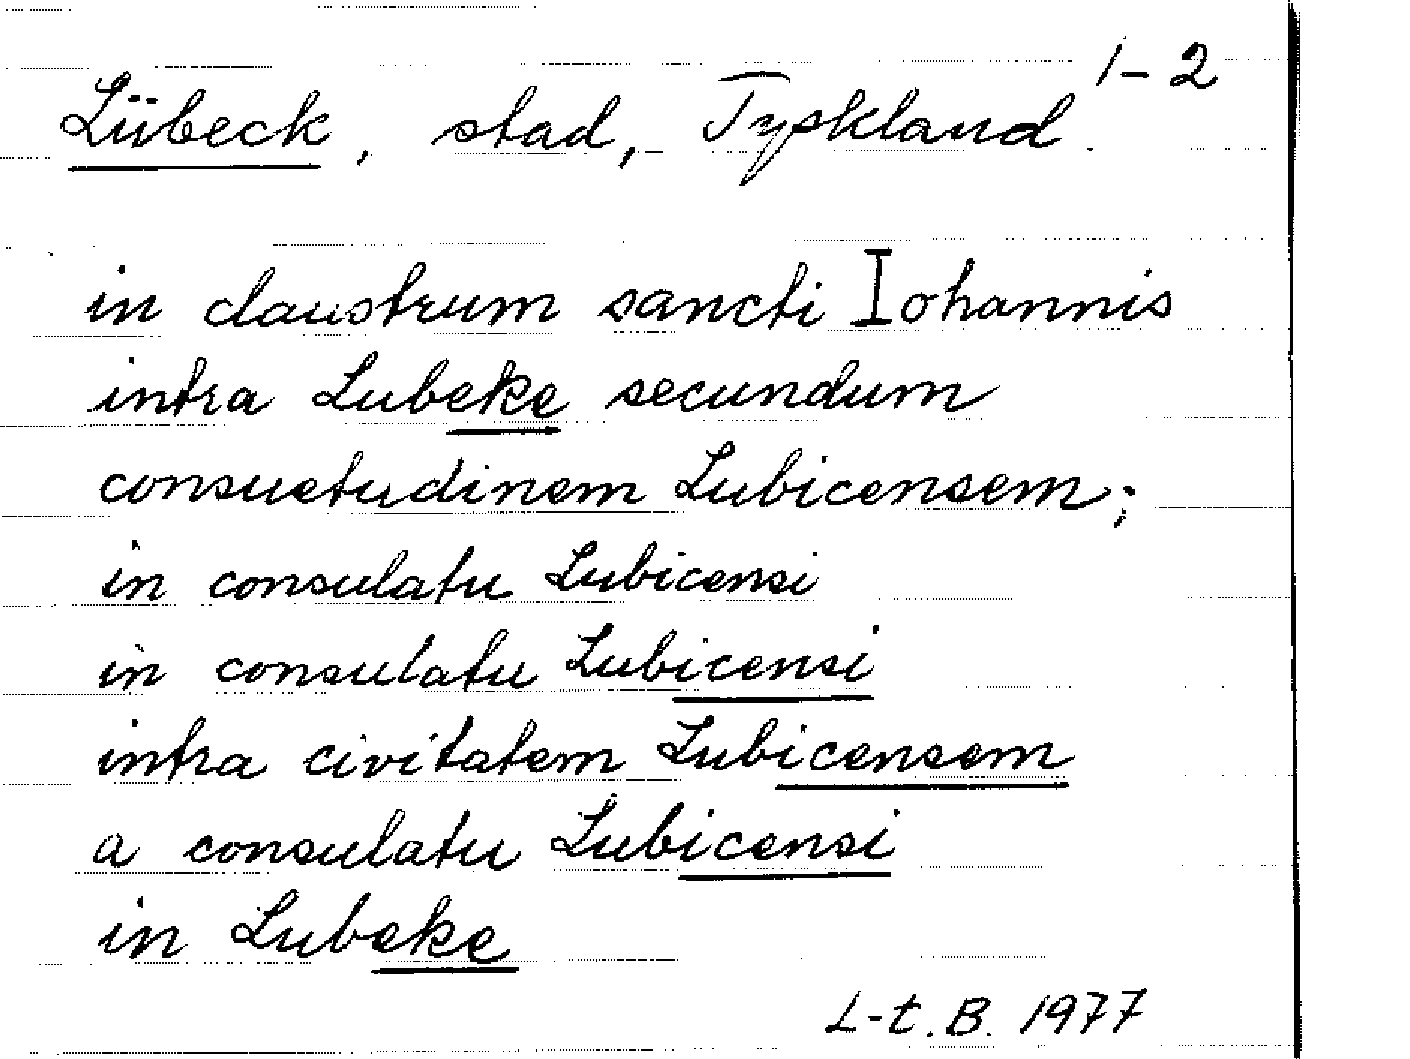 1-2
Lübeck, stad, Tyskland.
in claustrum sancti Iohannis
intra Lubeke secundum
consuetudinem Lubicensem;
in consulatu Lubicensi
in consulatu Lubicensi
intra civitatem Lubicensem
a consulatu Lubicensi
in Lubeke
L-t. B. 1977